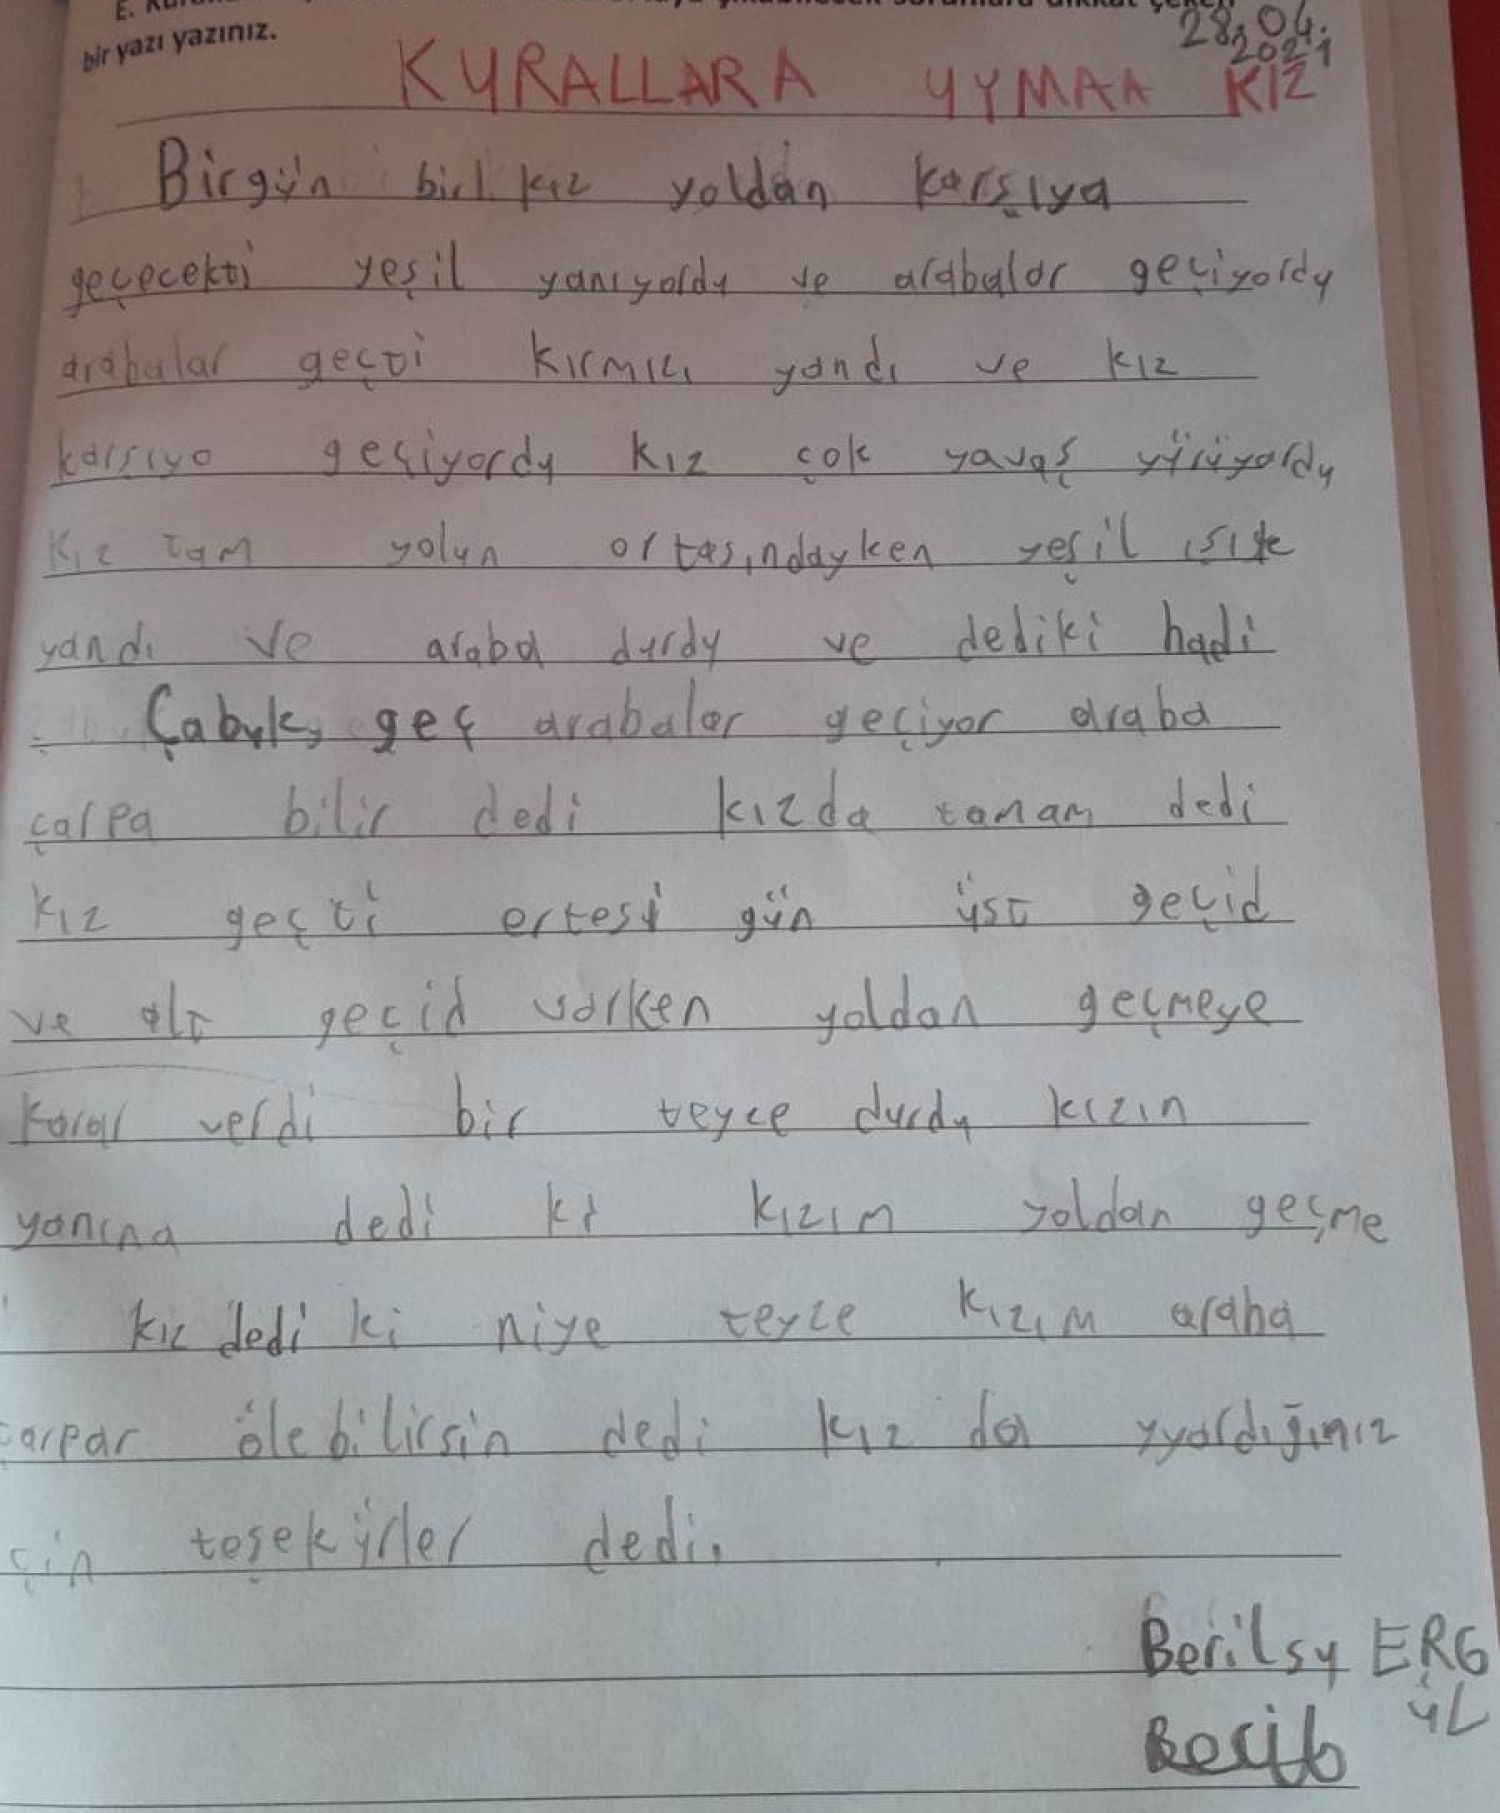 bir yazı yazınız.
28.04.
2021
KURALLARA UYMAA KIZ
Birgün bir kız yoldan karşıya
geçecekti yeşil yanıyordu ve arabalar geçiyordu
arabalar geçti kırmızı yandı ve kız
karşıya geçiyordu kız çok yavaş yürüyordu
kız tam yolun ortasındayken yeşil ışık
yandı ve araba durdu ve dediki hadi
Çabuk, geç arabalar geçiyor araba
çarpa bilir dedi kızda tamam dedi
kız geçti ertesi gün üst geçid
ve alt geçid varken yoldan geçmeye
karar verdi bir teyce durdu kızın
yanına dedi ki kızım yoldan geçme
kız dedi ki niye teyze kızım araba
çarpar ölebilirsin dedi kız da uyardığınız
çin teşekürler dedi.
Berilsu ERG
ÜL